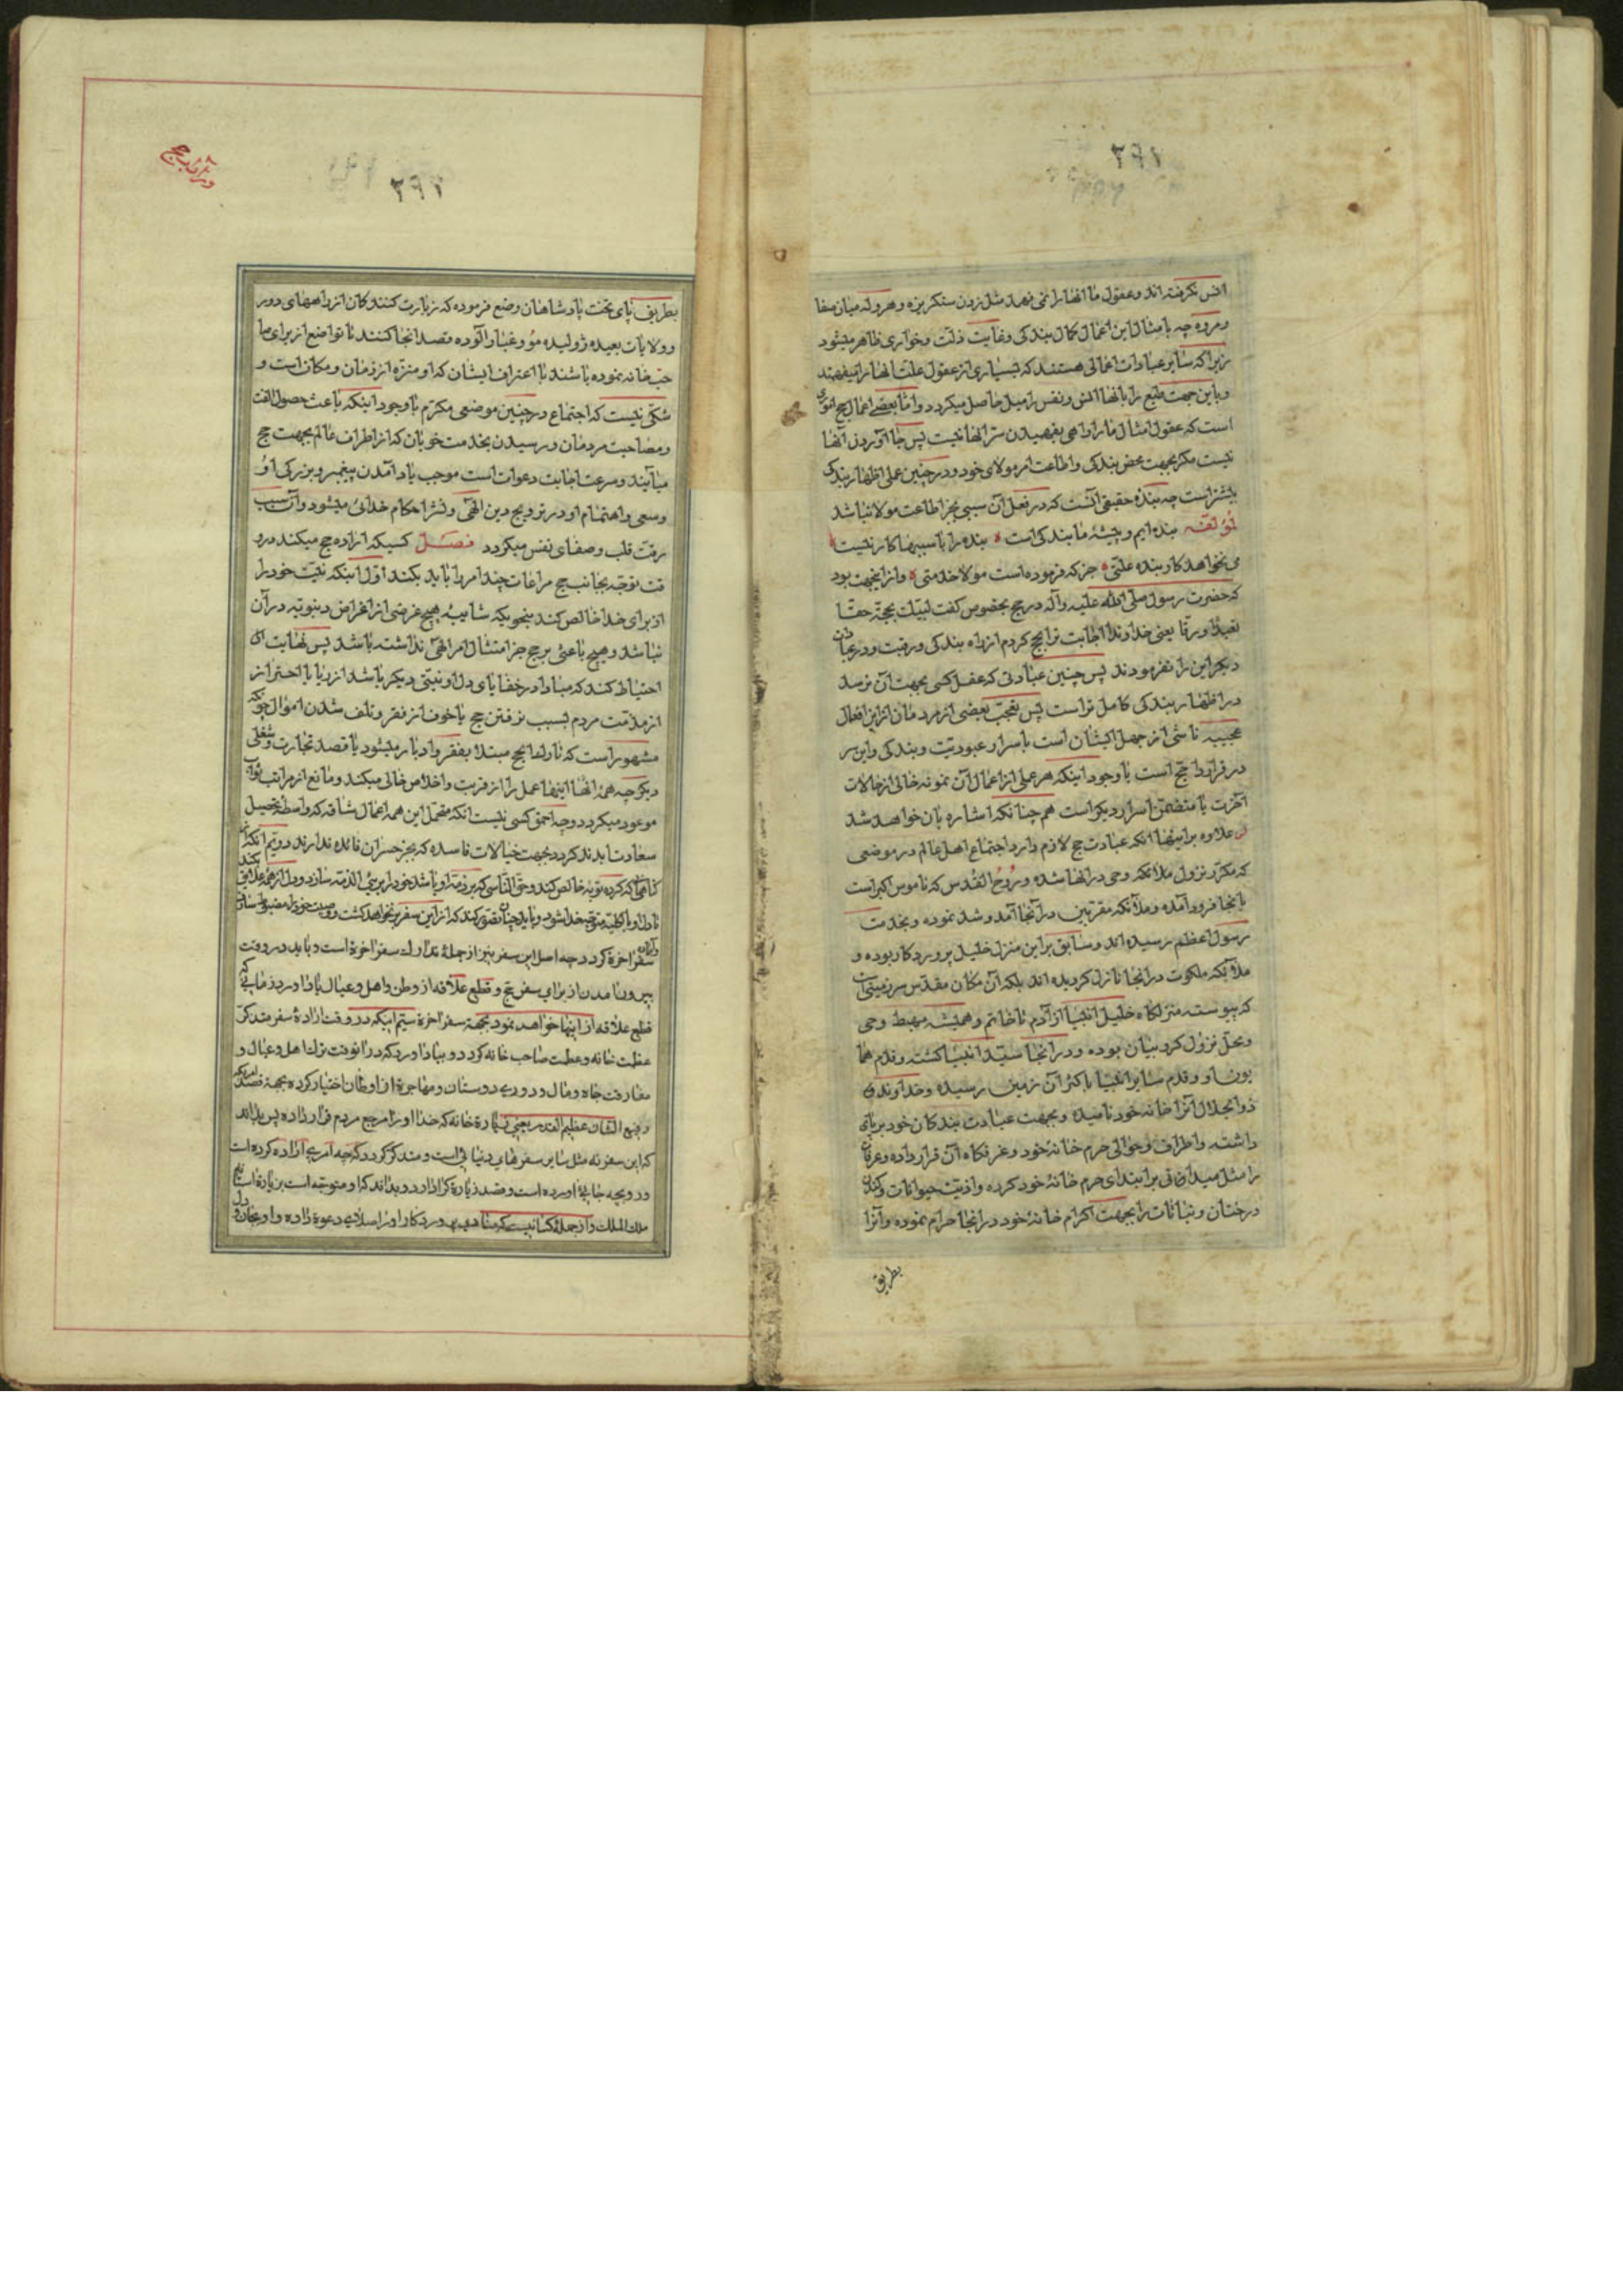 ۲۹۲
انس نگرفته اند و عقول ما انها را نمی فهمد مثل زدن سنگریزه و هروله میان صفا
و مروه چه بامثال این اعمال کمال بندکی و غایت ذلت و خواری ظاهر میشود
زیرا که سایر عبادات اعمالی هستند که بسیاری از عقول علت انها را میفهمند
و باین جهت طبع را بانها انس و نفس را میل حاصل میکردد و اما بعضی اعمال حج اموری
است که عقول امثال ما را راهی بفهمیدن سر انها نیست پس بجا آوردن آنها
نیست مکر بجهت محض بندکی و اطاعت امر مولای خود و در چنین عملی اظهار بندکی
بیشتر است چه بنده حقیقی آنست که در فعل آن سببی بجز اطاعت مولا نباشد
لمؤلفه بنده ایم و پیشهٔ ما بندکی است بنده را با سببها کار نیست
می نخواهد کار بنده علتی جز که فرموده است مولا خدمتی و از اینجهت بود
که حضرت رسول صلی الله علیه و آله در حج بخصوص گفت لبیک بحجّة حقّا
تعبدًا و رقّا یعنی خداوندا اجابت ترا بحج کردم از راه بندکی و رقیت و در عبادات
دیکر این را نفرمودند پس چنین عبادتی که عقل کسی بجهت آن نرسد
در اظهار بندکی کامل تر است پس تعجب بعضی از مردمان از این افعال
عجیبه ناشی از جهل ایشان است باسرار عبودیت و بندکی و این سر
در قرارداد حج است با وجود اینکه هر عملی از اعمال آن نمونه حالی از حالات
آخرت یا متضمن اسرار دیکر است هم چنانکه اشاره بان خواهد شد
علاوه بر اینها انکه عبادت حج لازم دارد اجتماع اهل عالم در موضعی
که مکرر نزول ملائکه وحی در انها شده و روح القدس که ناموس اکبر است
بانجا فرود آمده و ملائکه مقربین در آنجا آمد و شد نموده و بخدمت
رسول اعظم رسیده اند و سابق بر این منزل خلیل پروردکار بوده و
ملائکه ملکوت در انجا نازل کردیده اند بلکه آن مکان مقدس سرزمینی است
که پیوسته منزلکاه خلیل انبیا از آدم تا خاتم و همیشه مهبط وحی
و محل نزول کروبیان بوده و در انجا سید انبیا کشته و قدم هما
یون او و قدم سایر انبیا باکثر آن زمین رسیده و خداوند
ذو الجلال آنرا خانه خود نامیده و بجهت عبادت بندکان خود بر پای
داشته و اطراف و حوالی حرم خانه خود و عرفکاه آن قرار داده و عرفات
را مثل میدانی بر ابتدای حرم خانهٔ خود کرده و اذیت حیوانات و کندن
درختان و نباتات را بجهت اکرام خانهٔ خود در انجا حرام نموده و آنرا
بطریق
۲۹۲
بطریق پای تخت پادشاهان وضع فرموده که زیارت کنندکان از راههای دور
و ولایات بعیده ژولیده مو و غبار آلوده قصد انجا کنند تا تواضع از برای صا
حب خانه نموده باشند با اعتراف ایشان که او منزه از زمان و مکان است و
شکی نیست که اجتماع در چنین موضعی مکرم با وجود اینکه باعث حصول الفت
و مصاحبت مردمان و رسیدن بخدمت خوبان که از اطراف عالم بجهت حج
میآیند و سرعت اجابت دعوات است موجب یاد آمدن پیغمبر و بزرکی او
و سعی و اهتمام او در ترویج دین الهی و نشر احکام خدائی میشود و آن سبب
رقت قلب و صفای نفس میکردد فصل کسیکه اراده حج میکند در و
قت توجه بجانب حج مراعات چند امر را باید بکند اول اینکه نیت خود را
از برای خدا خالص کند بنحویکه شایبه هیچ غرضی از اغراض دنیویه در آن
نباشد و هیچ باعثی بر حج جز امتثال امر الهی نداشته باشد پس نهایت
احتیاط کند که مبادا در خفایای دل او نیتی دیکر باشد از ریا یا احتراز
از مذمت مردم بسبب نرفتن حج یا خوف از فقر و تلف شدن اموال چونکه
مشهور است که تارک الحج مبتلا بفقر و ادبار میشود یا قصد تجارت و شغلی
دیکر چه همهٔ انها اینها عمل را از قربت و اخلاص خالی میکند و مانع از مراتب ثواب
موعود میکردد و چه احمق کسی نیست انکه متحمل این همه اعمال شاقه که واسطهٔ تحصیل
سعادت ابدند کردد بجهت خیالات فاسده که بجز خسران فائده ندارند دویم انکه از
کناهی که کرده توبه خالص کند و حق الناسی که بر ذمه او باشد خود را بریئ الذمه سازد و دل از همه علایق بکند
تا دل او بالکلیه متوجه خدا شود و باید چنان تصور کند که از این سفر بر نخواهد کشت و وصیت خود را مضبوط سازد
و آماده سفر اخرة کردد چه اصل این سفر نیز از جملهٔ تدارک سفر اخرة است و باید در وقت
بیرون امدن از برای سفر حج و قطع علاقه از وطن و اهل و عیال یاد اورد زمانی که
قطع علاقه از اینها خواهد نمود بجهة سفر اخرة سیّم اینکه در وقت ارادهٔ سفر متذکر
عظمت خانه و عظمت صاحب خانه کردد و بیاد اورد که در انوقت ترک اهل و عیال و
مفارقت جاه و مال و دوری دوستان و مهاجرة از اوطان اختیار کرده بجهة قصد امریکه
رفیع الشان عظیم القدر یعنی زیارة خانه که خدا او را مرجع مردم قرار داده پس بداند
که این سفر نه مثل سایر سفرهای دنیایی است و متذکر کردد که چه امری اراده کرده است
و رو بچه جایی اورده است و قصد زیارة کرا دارد و بداند که او متوجه است بزیارة استان
ملک الملک و از جمله کسانیست که منادی پروردکار او را صلا در دعوة داده و او بجان و دل